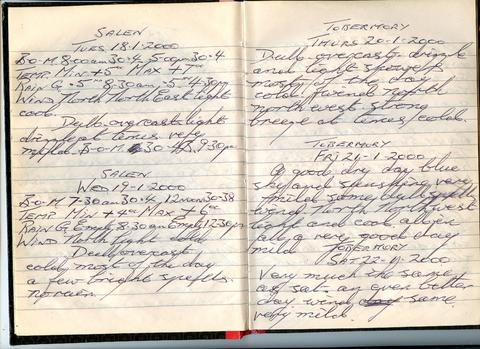 SALEN
TUES 18.1-2000
B-O-M 8.00am 30.4 5.00pm 30.4
TEMP MIN +5 MAX +7
RAIN G 8.30am 4.30pm
WIND North North East light
cool.
Dull-overcast-light
drizzle at times very
mild. B-O-M 30.4 9.30pm
SALEN
WED 19-1-2000
B-O-M 7-30am 30.4, 12noon 30.38
TEMP MIN +4 MAX +6
RAIN G Empty 8.30am Empty 12.30pm
WIND North light cold
Dull overcast
cold most of the day
a few bright spells.
no rain.
TOBERMORY
THURS 20-1-2000
Dull-overcast-drizzle
and light
most of the day
cold wind north
north west strong
breeze at times/cold.
TOBERMORY
FRI 21-1-2000
A good dry day blue
sky and sunshine very
mild some
wind North North West
light and cool
all a very good day
mild TOBERMORY
SAT 22-1-2000
Very much the same
as sat. an even better
day wind same
very mild.